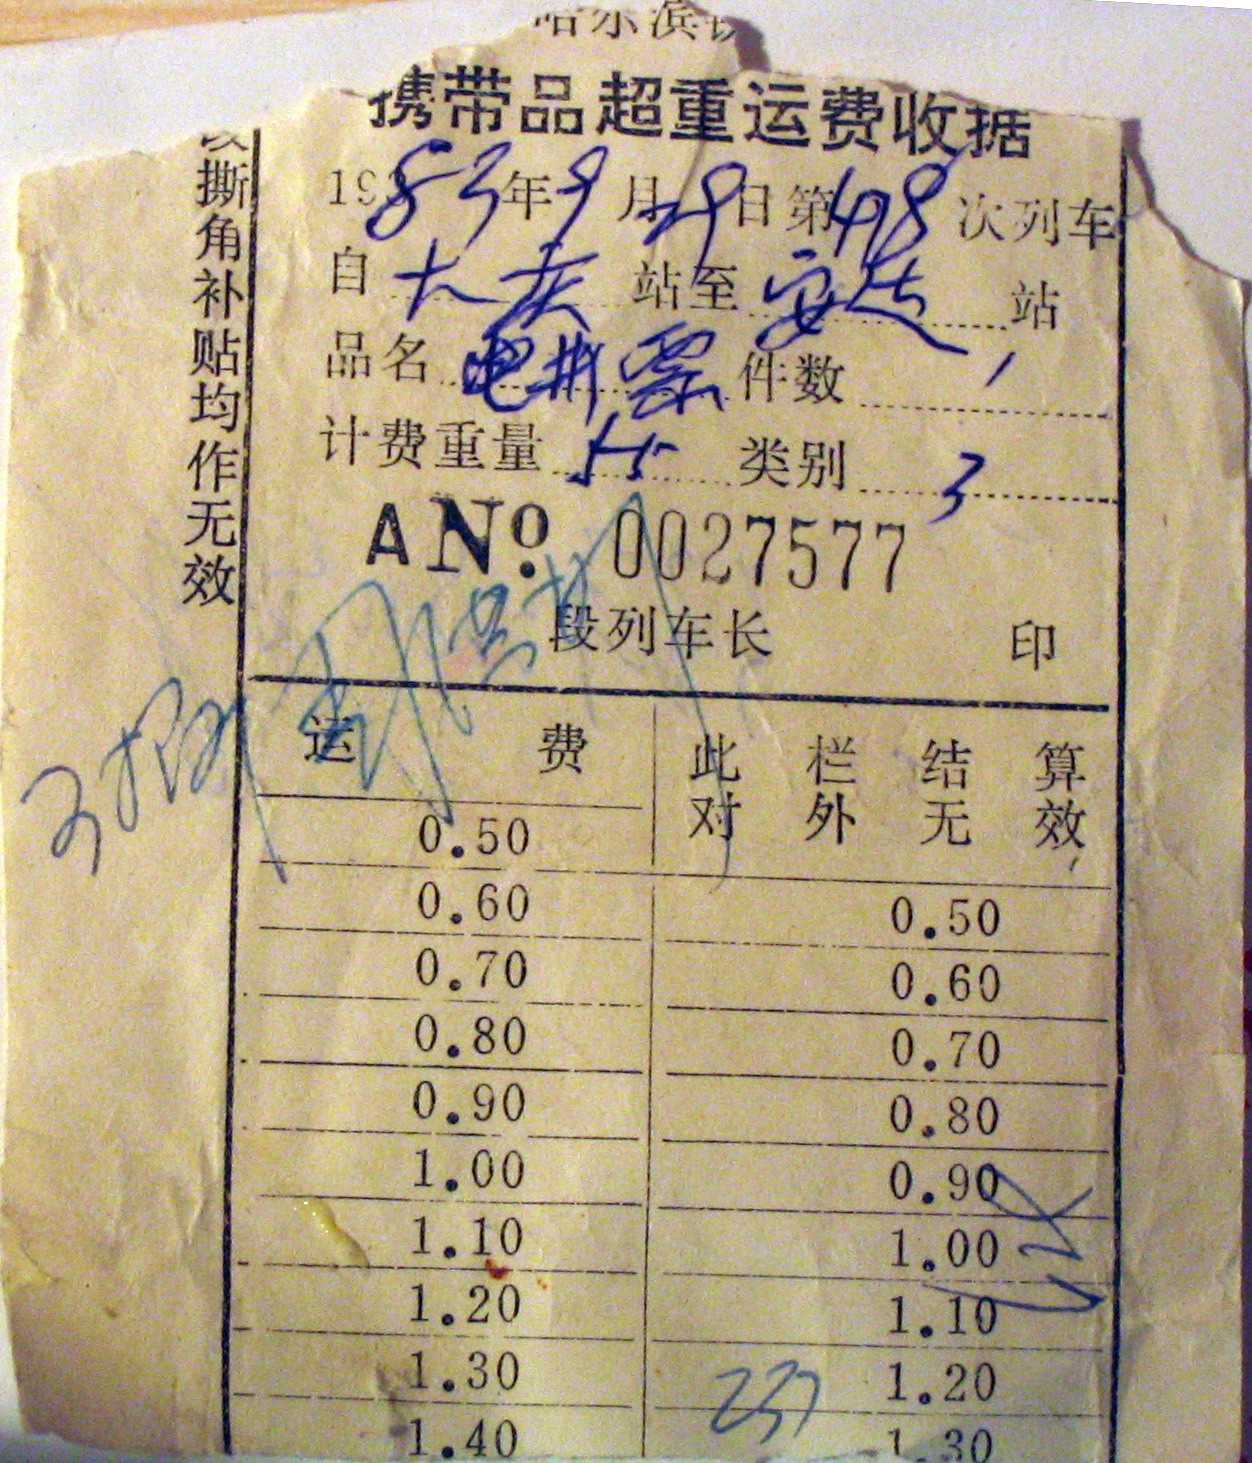 哈尔滨铁
携带品超重运费收据
1983年9月29日第498次列车
自大庆站至安达站
品名 件数 1
计费重量 15 类别 3
A No. 0027577
段列车长 印
撕角补贴均作无效
运费 此栏结算
对外无效
0.50
0.60 0.50
0.70 0.60
0.80 0.70
0.90 0.80
1.00 0.90
1.10 1.00
1.20 1.10
1.30 1.20
1.40 1.30
237